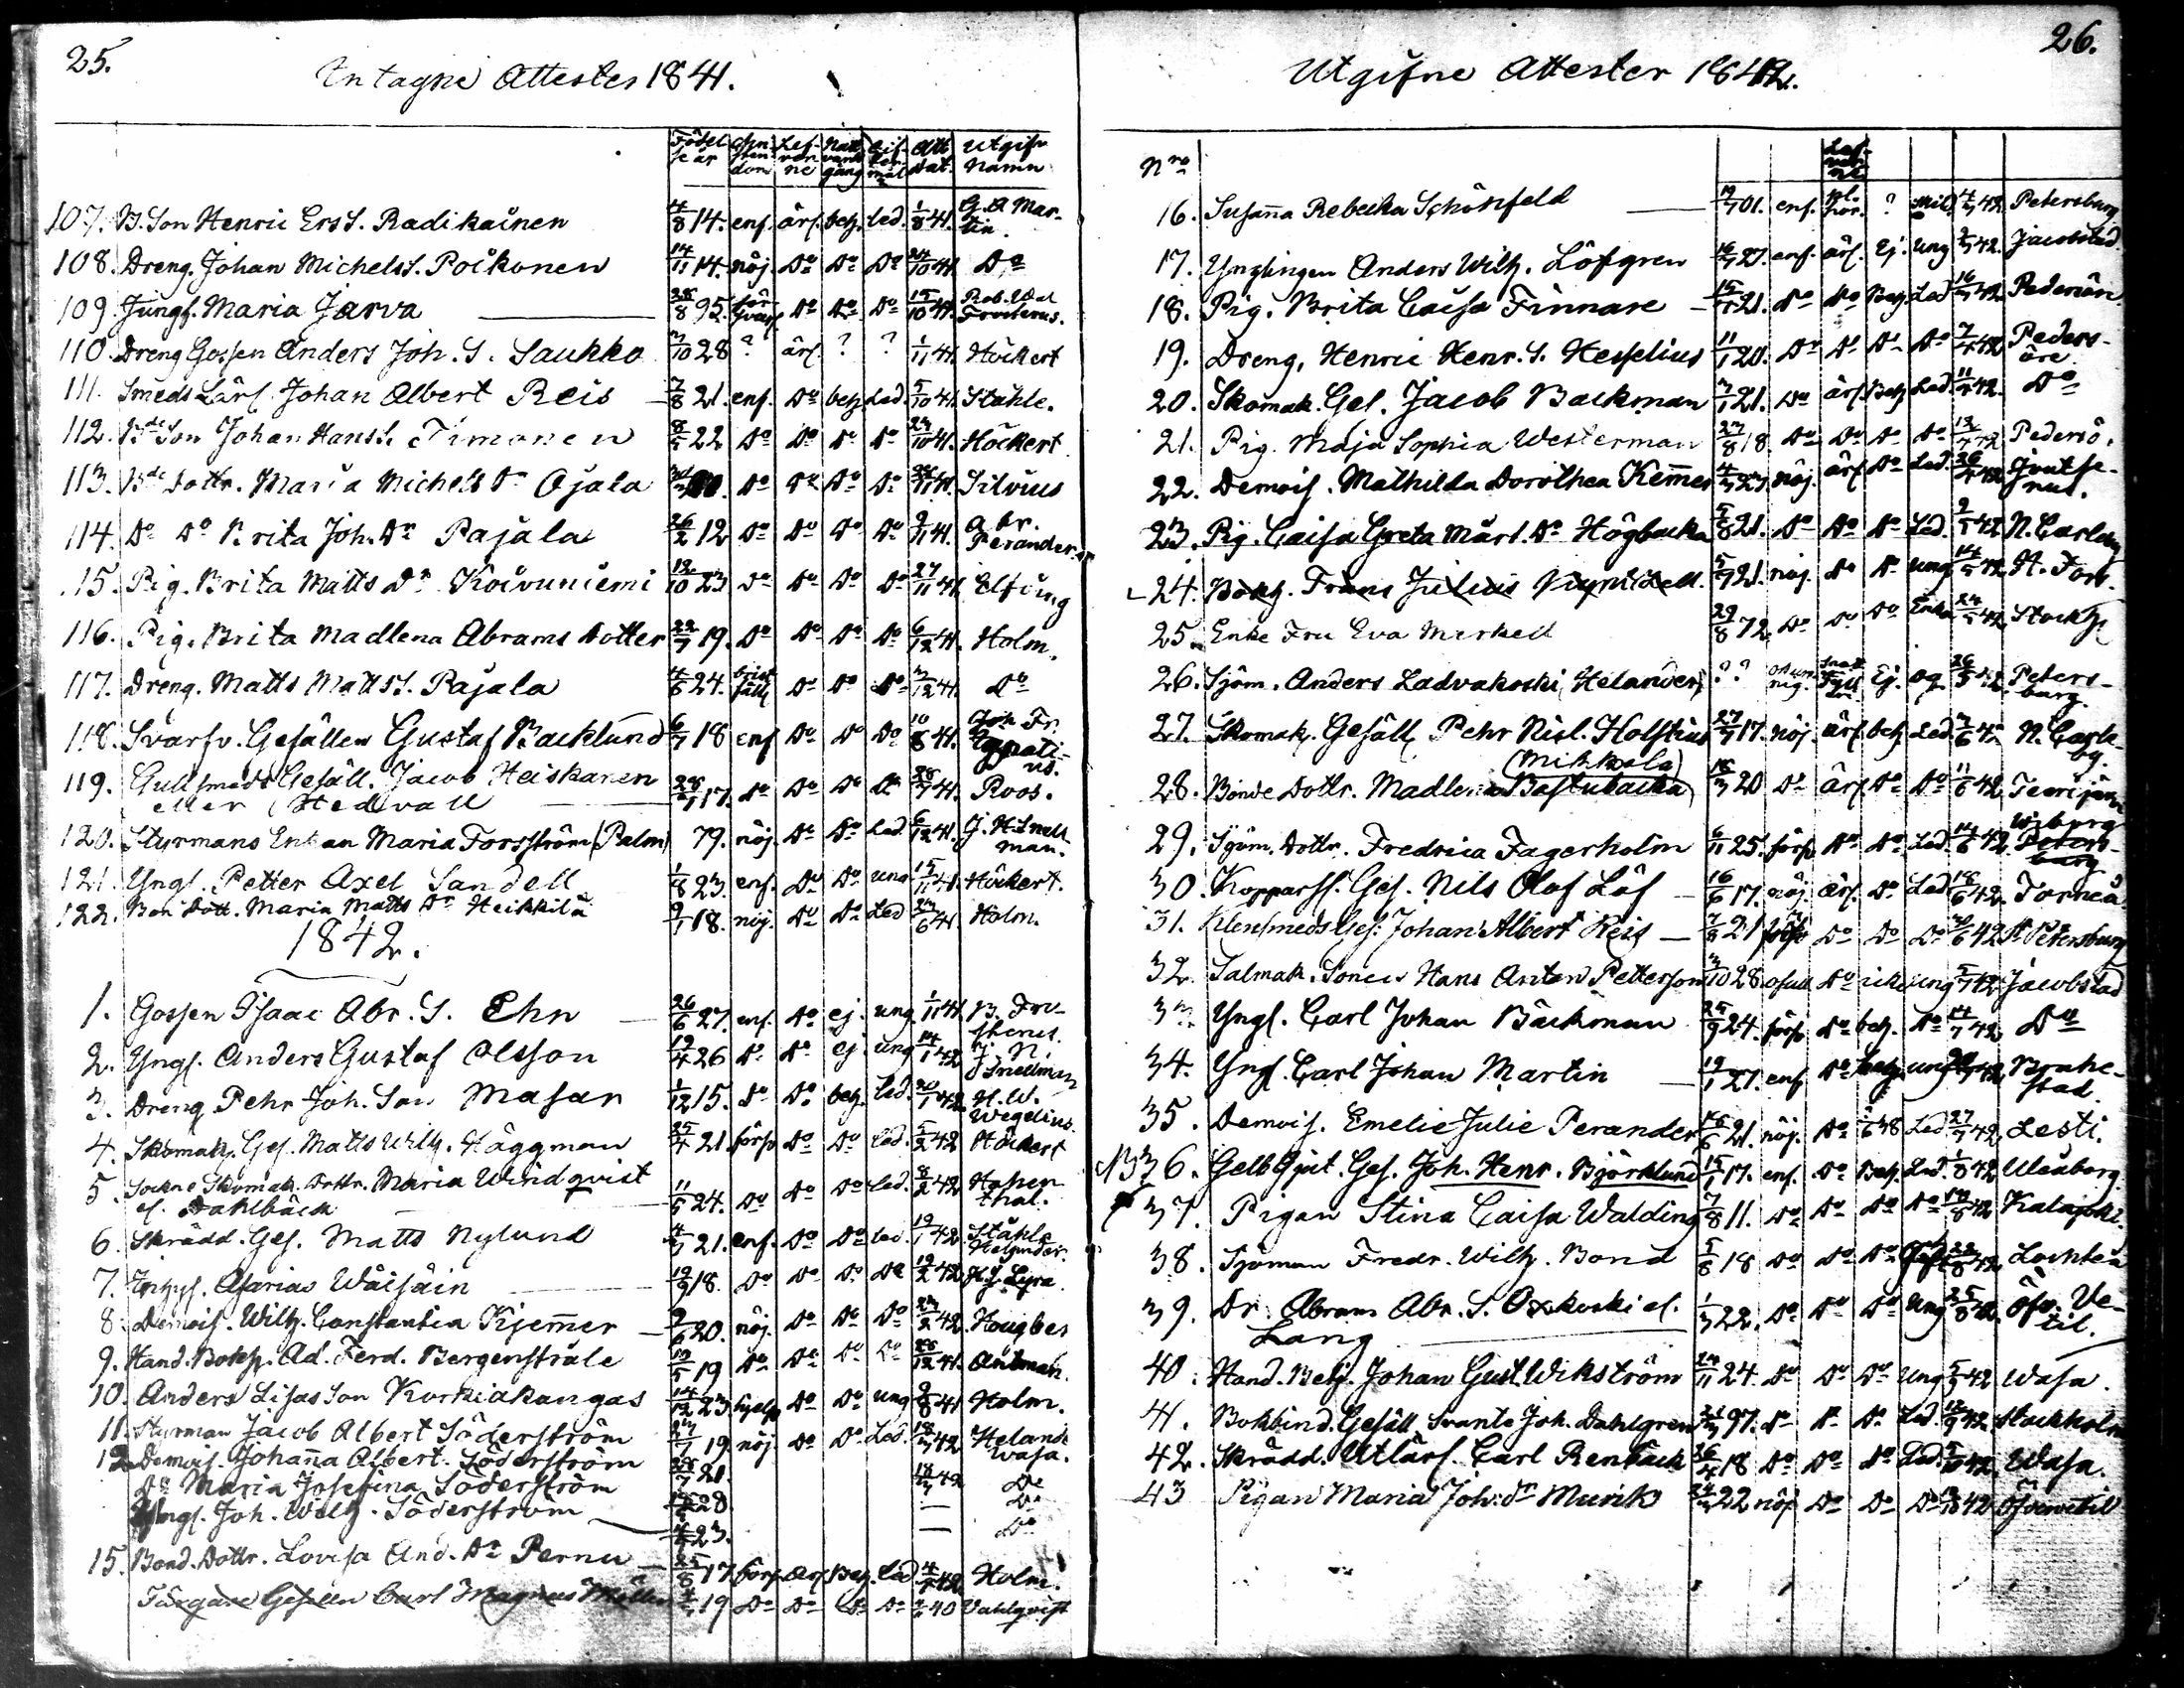 25.
Intagne Attester 1841.
Födelse år Christendom Lefverne Nattvardsgång Äktermål Att dat. Utgifv Namn
107. B. Son Henric Ers S. Radikainen 4/8 14. enf. ärl. beh. led. 1/8 41. G. A Martin.
108. Dreng. Johan Michels S. Poikonen 14/11 14. nöj. Do Do Do 24/10 41. Do
109. Jungf. Maria Jarva 28/8 95. försvarl Do Do Do 15/10 41. Rob. Wal Frosterus.
110. Dreng Gossen Anders Joh. S. Saukko 3/10 28 ? ärl. ? ? 1/11 41. Höckert
111. Smeds Lärl. Johan Albert Reis 7/8 21. enf. Do beh. Led. 5/10 41. Ståhle.
112. Bde Son Johan Hanss. Timonen 8/5 22 Do Do Do Do 23/10 41. Höckert
113. Bde Dottr. Maria Michels Dr Ojala Do Do Do Do 41. Silvius
114. Do Do Brita Joh. Dr Pajala 26/2 12 Do Do Do Do 9/11 41. Abr. Perander
115. Pig. Brita Matts Dr Koivuniemi 12/10 23 Do Do Do Do 27/11 41. Elfving
116. Pig. Brita Madlena Abrams Dotter 22/7 19. Do Do Do Do 6/12 41. Holm.
117. Dreng. Matts Matts S. Pajala 4/6 24. bristfäll Do Do Do 3/12 41. Do
118. Svarfv. Gesällen Gustaf Backlund 6/7 18 enf Do Do Do 10/8 41. Joh. Fr. Egnatius.
119. Gullsmeds Gesäll. Jacob Heiskanen 28/1 17. Do Do Do Do 28/7 41. Roos.
eller (Hedvall
120. Styrmans Enkan Maria Forsström (Palm) 79. nöj. Do Do Led. 6/12 41. J. H. Snellman.
121. Yngl. Petter Axel Sandell 1/8 23. enf. Do Do ung 15/11 41. Höckert.
122. Bon Dott. Maria Matts Dr Heikkilä 9/1 18. nöj. Do Do Led 23/6 41. Holm.
1842.
1. Gossen Isaac Abr. S. Ehn 26/6 27. enf. Do ej. ung. 1/11 41. B. Frosterus.
2. Yngl. Anders Gustaf Olsson 19/4 26 Do Do ej. ung 14/1 42 J. N. Snellman
3. Dreng Pehr Joh. Son Masar 1/12 15. Do Do beh. led. 20/1 42. H. W. Wegelius.
4. Skomak. Ges. Matts Wilh. Häggman 25/4 21 försv Do Do led. 5/2 42 Höckert
5. Sockne Skomak. Dottr. Maria Windqvist 11/5 24. Do Do Do led. 8/2 42 Hohenthal.
el. Dahlbäck
6. Skrädd. Ges. Matts Nylund 4/3 21. enf. Do Do led. 19/1 42. Ståhle Helsinder.
7. Yngl. Asarias Wäisäin 19/9 18. Do Do Do Do 19/2 42 H. J. Lyra.
8. Demois. Wilh. Constantia Kjemer 9/6 20. nöj. Do Do Do 23/2 42. Hougber
9. Hand. Bokh. Ad. Ferd. Bergenstråle 19/5 19 Do Do Do Do 28/12 41. Antman.
10. Anders Lisas Son Kurkiakangas 14/12 23. hjelp Do Do ung 9/8 41 Holm.
11. Styrman Jacob Albert Söderström 23/7 19 nöj Do Do Led. 18/3 42 Helande Wasa.
12 Demois. Johanna Albert. Söderström 28/7 21. 18/3 42 Do
Do Maria Josefina Söderström 28 — Do
Yngl. Joh. Wilh. Söderström 4/2 23. — Do
15. Bond. Dottr. Lovisa And. Dr Pernu 25/8 17. försv. ärl. Beh. led 4/4 42 Holm.
Färgare Gesellen Carl Magnus Möller 19 Do Do Do Do 40 Wahlqvist
26.
Utgifne Attester 1842.
Nro Lefverne
16. Susanna Rebecka Schönfeld 19/7 01. enf. ? 42 Petersburg
17. Ynglingen Anders Wilh. Löfgren 16/2 27. enf. ärl. Ej. ung 42. Jacobstad.
18. Pig. Brita Caisa Finnare 15/7 21. Do Do Beh Led 16/3 42 Pedersöre
19. Dreng, Henric Henr. S. Hesselius 11/1 20. Do Do Do Do 7/4 42 Pedersöre
20. Skomak. Ges. Jacob Backman 3/1 21. Do ärl. Beh Led. 11/4 42. Do
21. Pig. Maja Sophia Westerman 27/8 18. Do Do Do Do 12/4 42 Pedersö.
22. Demois. Mathilda Dorothea Kemer 4/3 23. nöj. ärl Do Led. 26/4 42
23. Pig. Caisa Greta Mårt. Dr Högbacka 5/8 21. Do Do Do Led. 2/5 42 N. Carleby
24. Bokh. Frans Julius 5/7 21. nöj. Do Do ung 14/5 42 H. Fors.
25. Enke Fru Eva Merkell 29/8 72. Do Do Do Enka 24/5 42 Stockh
26. Sjöm. Anders Ladvakoski (Helander) ? ? Ej. og. 26/5 42 Petersburg.
27. Skomak. Gesäll Pehr Nicl. Holstius 27/7 17. nöj. ärl. beh. Led. 7/6 42 N. Carleby.
28. Bonde Dottr. Madlena Bastubacka (Mikkola) 18/3 20 Do ärl Do Do 11/6 42 Teerijärvi
29. Sjöm. Dottr. Fredrica Fagerholm 6/11 25. försv Do Do Led. 14/6 42. Wiburg Petersburg
30. Kopparsl. Ges. Nils Olof Löf 16/6 17. nöj. ärl. Do Led 18/6 42. Torneå.
31. Klensmeds Ges. Johan Albert Reis 7/8 21 försv Do Do Do 30/6 42 St Petersburg
32. Salmak. Sonen Hans Anton Petterson 3/10 28 Do icke ung 5/7 42 Jacobstad
33. Yngl. Carl Johan Bäckman 25/9 24. försv Do beh. Do 14/7 42. Do
34. Yngl. Carl Johan Martin 19/1 27. enf Do beh. ung 42 Brahestad.
35. Demois. Emelie Julie Perander 16/6 21. nöj. Do 38 Led. 27/7 42. Lesti.
NB 36. Gelb Gjut. Ges. Joh. Henr. Björklund 15/1 17. enf. Do Beh. Led. 1/8 42 Uleåborg
37. Pigan Stina Caisa Walding 7/8 11. Do Do Do Do 14/8 42 Kalajoki.
38. Sjöman Fredr. Wilh. Bond 5/8 18 Do Do Do 22/8 42. Lochteå
39. Dr. Abram Abr. S. Oxkoski el. 1/3 22. Do Do Do Ung 25/8 42. Öfv. Vetil.
Lang
40. Hand. Betj. Johan Gust. Wikström 24/11 24. Do Do Do Ung 5/9 42 Wasa.
41. Bokbind. Gesäll Svante Joh. Dahlgren 21/3 97. Do Do Do Led. 13/9 42. Stockholm
42. Skrädd. Utlärl. Carl Renback 26/4 18 Do Do Do Led. 5/10 42. Wasa.
43 Pigan Maria Joh: dr Murik 24/3 22 nöj Do Do Do 42 Öfvervetil